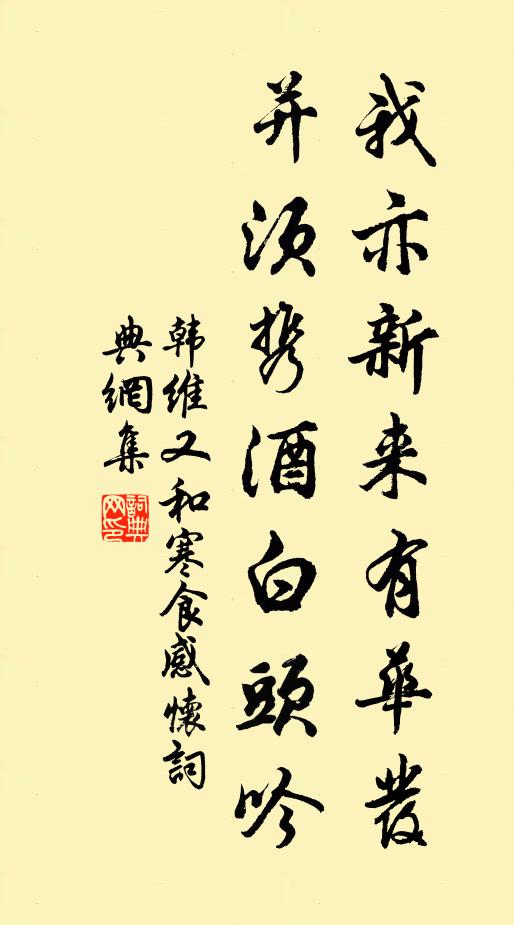 我亦新来有华發
并须携酒白頭吟
韩维又和寒食感懷詞
典網集
詞典网印